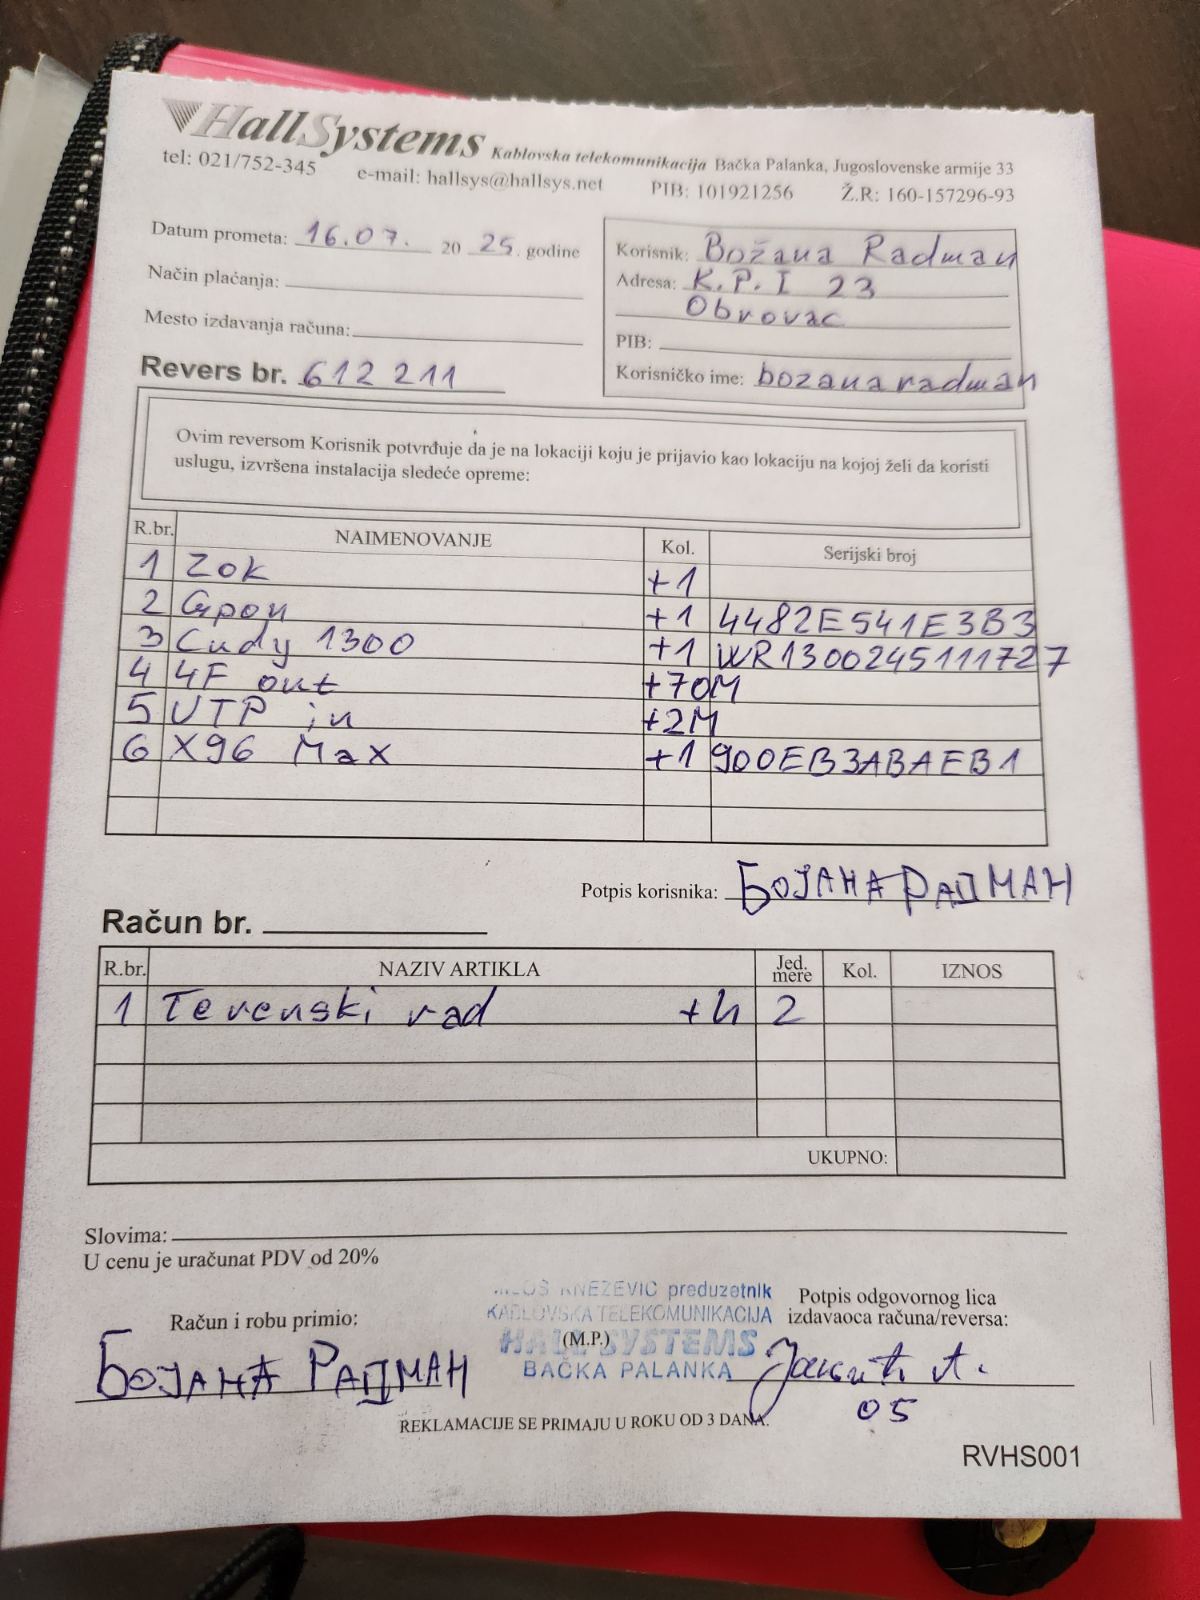 HallSystems Kablovska telekomunikacija Bačka Palanka, Jugoslovenske armije 33
tel: 021/752-345 e-mail: hallsys@hallsys.net PIB: 101921256 Ž.R: 160-157296-93
Datum prometa: 16.07. 20 25. godine
Način plaćanja:
Mesto izdavanja računa:
Revers br. 612 211
Korisnik: Božana Radman
Adresa: K.P.I 23
Obrovac
PIB:
Korisničko ime: bozanaradman
Ovim reversom Korisnik potvrđuje da je na lokaciji koju je prijavio kao lokaciju na kojoj želi da koristi
uslugu, izvršena instalacija sledeće opreme:
R.br. NAIMENOVANJE Kol. Serijski broj
1 Zok +1
2 Gpon +1 4482E541E3B3
3 Cudy 1300 +1 WR1300245111727
4 4F out +70M
5 UTP in +2M
6 X96 Max +1 900EB3ABAEB1
Potpis korisnika: БОЈАНА РАДМАН
Račun br.
R.br. NAZIV ARTIKLA Jed. mere Kol. IZNOS
1 Terenski rad +h 2
UKUPNO:
Slovima:
U cenu je uračunat PDV od 20%
Račun i robu primio:
БОЈАНА РАДМАН
MILOŠ KNEŽEVIĆ preduzetnik
KABLOVSKA TELEKOMUNIKACIJA
(M.P.) HALL SYSTEMS
BAČKA PALANKA
Potpis odgovornog lica
izdavaoca računa/reversa:
A.
05
REKLAMACIJE SE PRIMAJU U ROKU OD 3 DANA.
RVHS001